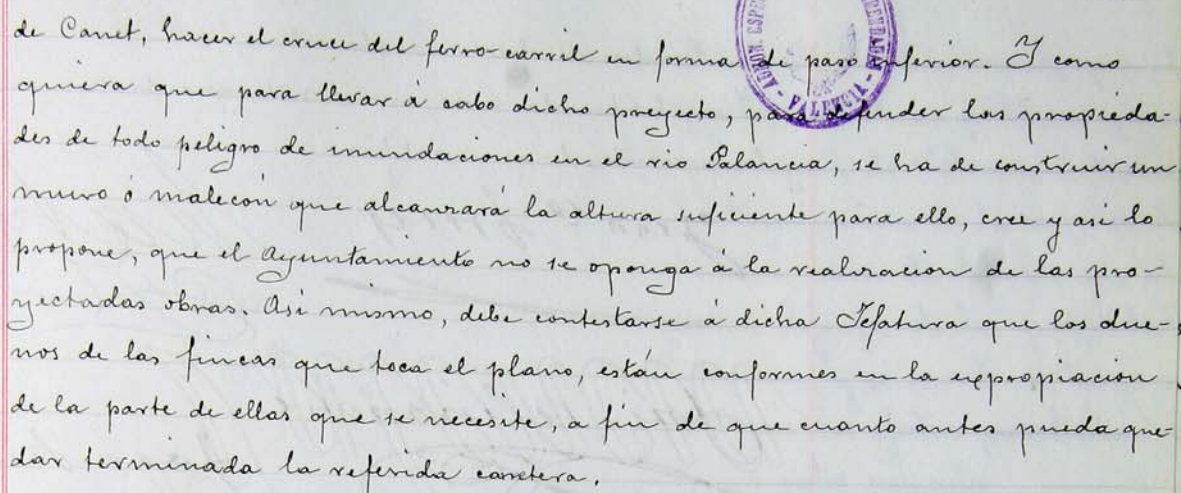 de Canet, hacer el cruce del ferro-carril en forma de paso inferior. Y como
quiera que para llevar á cabo dicho proyecto, para defender las propieda-
des de todo peligro de inundaciones en el rio Palancia, se ha de construir un
muro ó malecón que alcanzará la altura suficiente para ello, cree y asi lo
propone, que el Ayuntamiento no se oponga á la realizacion de las pro-
yectadas obras. Asi mismo, debe contestarse á dicha Jefatura que los due-
nos de las fincas que toca el plano, están conformes en la expropiacion
de la parte de ellas que se necesite, a fin de que cuanto antes pueda que-
dar terminada la referida carretera.
VALENCIA